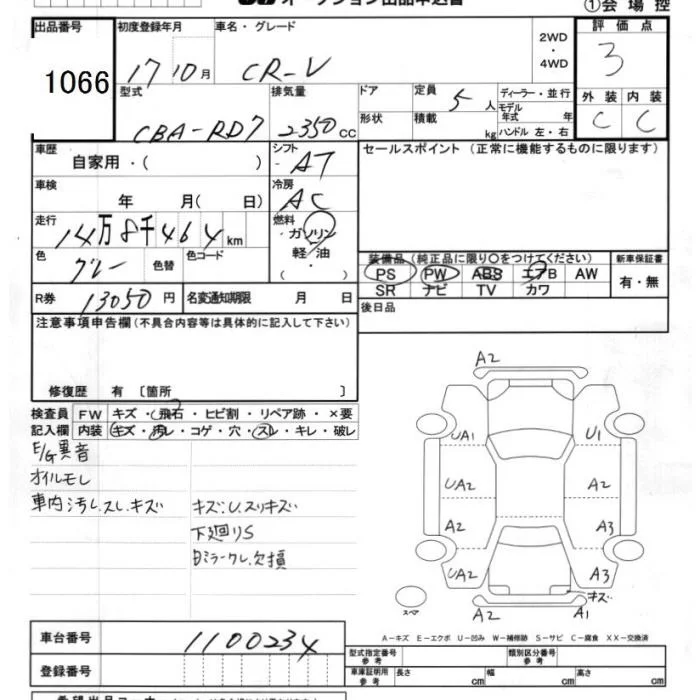 ①会場控
出品番号 初度登録年月 車名・グレード 評価点
1066 17 10月 CR-V 2WD・4WD 3
型式 排気量 ドア 定員 5人 ディーラー・並行 外装 内装
CBA-RD7 2350cc 形状 積載 kg モデル年式 年 ハンドル 左・右 C C
車歴 自家用・( ) シフト AT セールスポイント（正常に機能するものに限ります）
車検 年 月( 日) 冷房 AC
走行 14万8千464km 燃料 ガソリン・軽油・( )
色 グレー 色替 色コード 装備品（純正品に限り○をつけてください） 新車保証書
PS PW ABS エアB AW 有・無
R券 13050円 名変通知期限 月 日 SR ナビ TV カワ
注意事項申告欄(不具合内容等は具体的に記入して下さい) 後日品
修復歴 有 〔箇所 〕
検査員 FW キズ・飛石・ヒビ割・リペア跡・×要
記入欄 内装 キズ・汚レ・コゲ・穴・スレ・キレ・破レ
E/G異音
オイルモレ
車内汚し、スレ、キズ キズ：U、スリキズ
下廻りS
ミラークレ、欠損
A2
UA1 U1
UA2 A2
A2 A3
UA2 A3
キズ
スペア A2 A1
A－キズ E－エクボ U－凹み W－補修跡 S－サビ C－腐食 XX－交換済
車台番号 1100234
型式指定番号 参考 類別区分番号 参考
登録番号 車庫証明用 参考 長さ cm 幅 cm 高さ cm